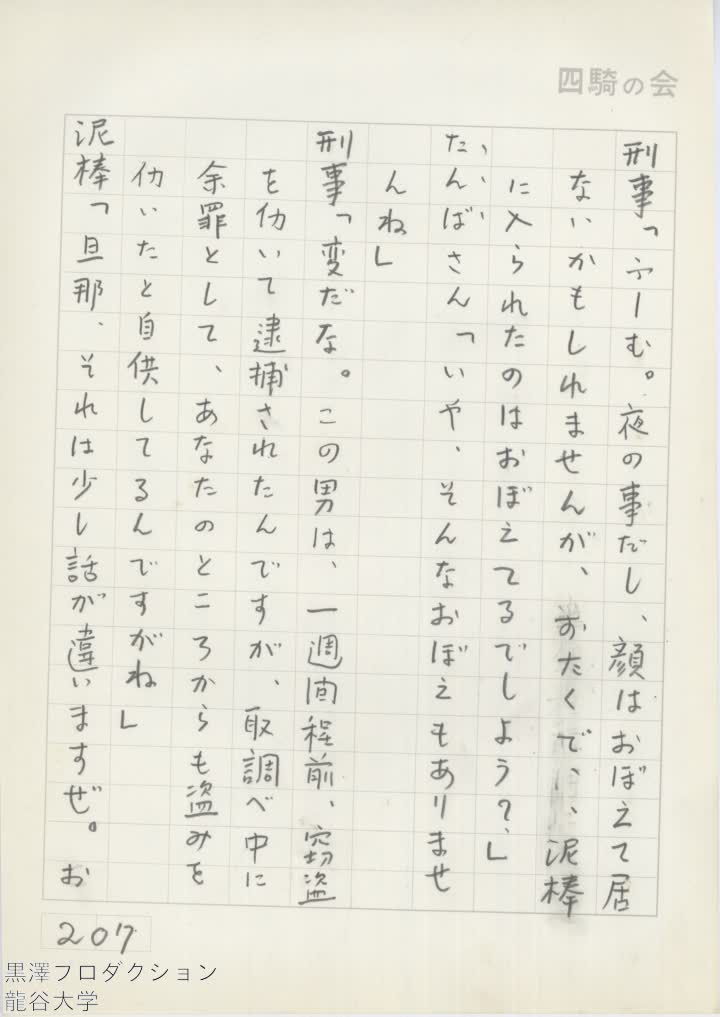 四騎の会
刑事「ふーむ。夜の事だし、顔はおぼえて居
ないかもしれませんが、おたくで、、泥棒
に入られたのはおぼえてるでしよう?、」
たんばさん「いや、そんなおぼえもありませ
んね」
刑事「変だな。この男は、一週间程前、窃盗
を仂いて逮捕されたんですが、取調べ中に
余罪として、あなたのところからも盗みを
仂いたと自供してるんですがね」
泥棒「旦那、それは少し話が違いますぜ。お
207
黒澤フロダクション
龍谷大学